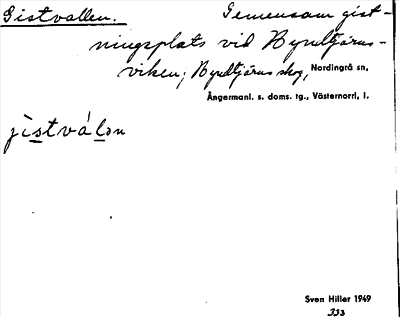 Gistvallen. Gemensam gist-
ningsplats vid Byndtjärns-
viken; Byndtjärns skog, Nordingrå sn,
Ångermanl. s. doms. tg., Västernorrl. l.
jìstválən
Sven Hiller 1949
333